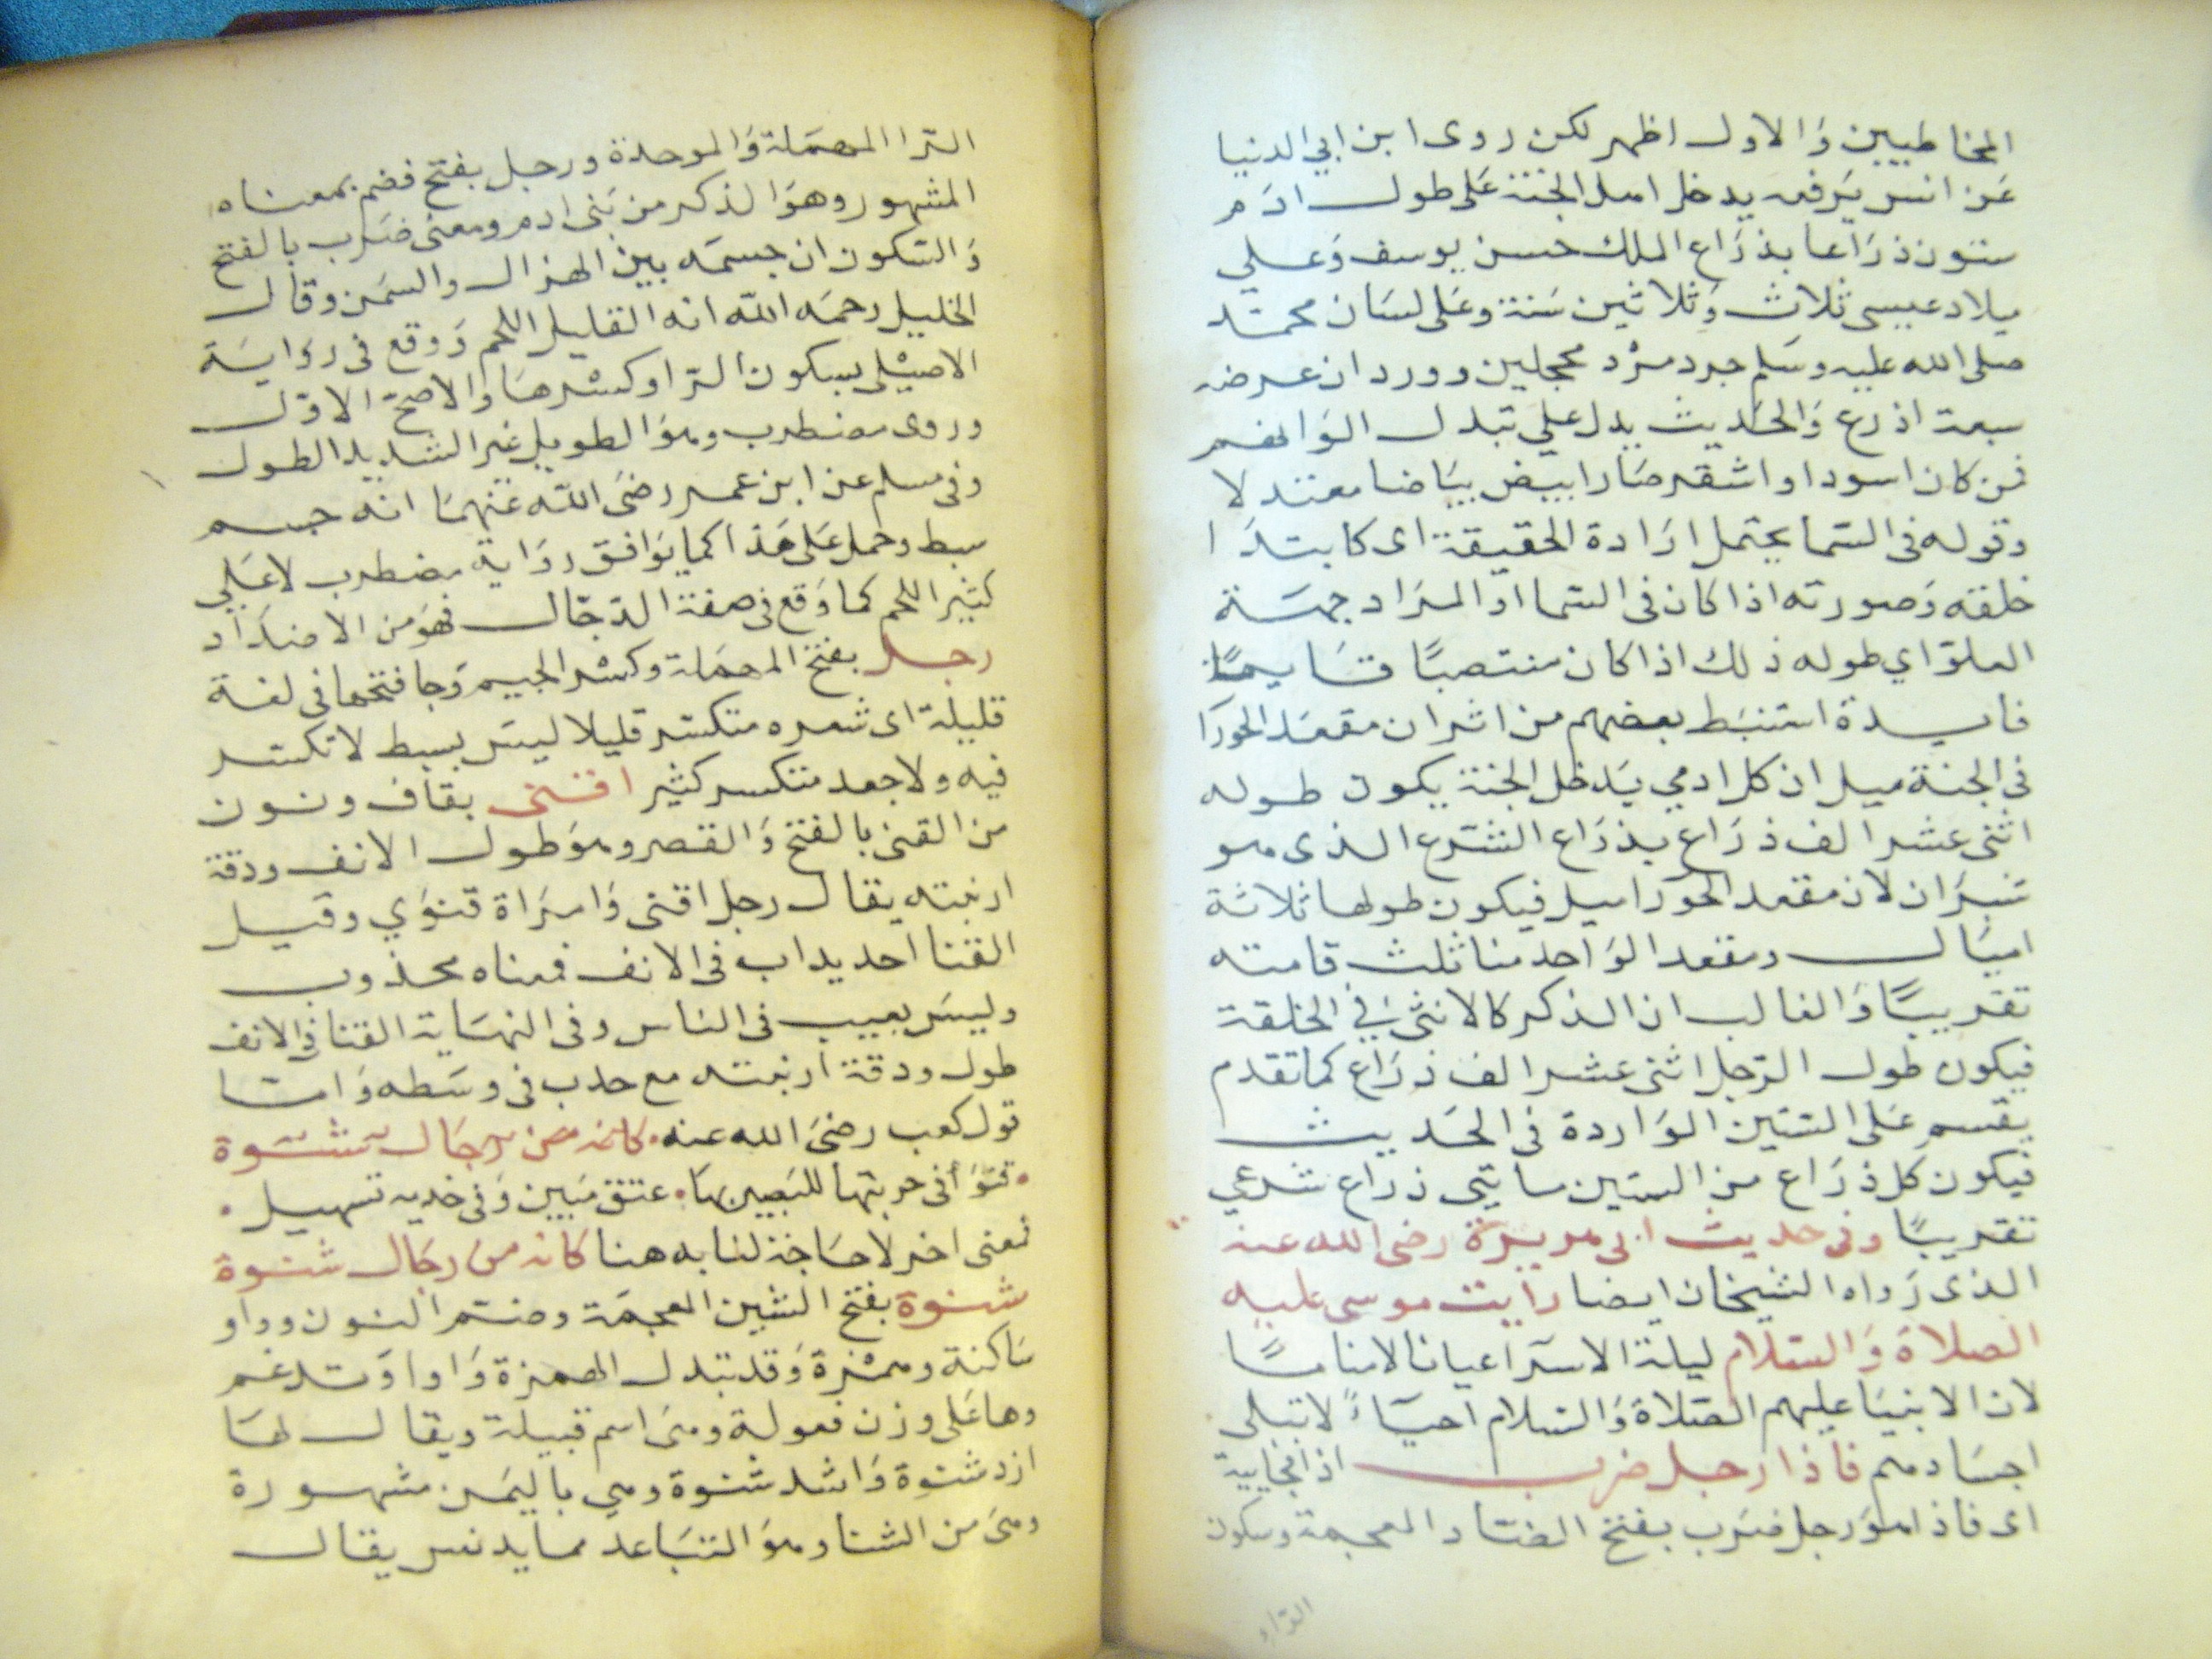 المخاطبيين وَالاول اظهر لكن روى ابن ابي الدنيا
عَن انس يَرفعه يدخل اهل الجنة عَلى طول ادَم
ستون ذرَاعا بذرَاع الملك حسن يوسف وَعلي
ميلاد عيسى ثلاث وَثلاثين سَنة وعَلى لسَان محمد
صلى الله عليه وسَلم جرد مرْد محجلين وورد ان عرضه
سبعة اذرع وَالحَديث يدل علي تبدل الوَانهم
فمن كان اسود او اشقر صَار ابيض بيَاضا معتدلا
وقوله في السَما يحتمل ارَادة الحقيقة اى كابتدَا
خلقته وَصورته اذا كان في السَما او المرَاد جهَة
العلوّ اي طوله ذلك اذا كان منتصبًا قَايمًا
فايدة استنبَط بعضهم من اثر ان مقعَد الحورَا
في الجنة ميل ان كل ادمي يَدخل الجنة يكون طوله
اثنى عشر الف ذرَاع بذرَاع الشرَع الذى هو
شبرَان لان مقعد الحورا ميل فيكون طولها ثلاثة
اميَال ومقعد الوَاحد منا ثلث قامته
تقريبًا وَالغالب ان الذكر كالانثىَ فِي الخلقة
فيكون طول الرَجل اثنى عشر الف ذرَاع كما تقدم
يقسم عَلى السَتين الوَاردة في الحَديث
فيكون كل ذرَاع من الستين مايتى ذراع شرعي
تقريبًا وفى حديث ابى هريرَة رضى الله عنه
الذى رَواه الشيخان ايضا رَايت موسى عليه
الصلاة وَالسَلام ليلة الاسرَا عيانا لا منامًا
لان الانبيَا عليهم الصَلاة وَالسَلام احيَاءً لا تبلى
اجسَادهم فاذا رجل ضرب اذا فجاييَة
اى فاذا هوَ رجل ضرَب بفتح الضَاد المعجمة وسكون
الرّاء
الرَا المهمَلة وَالموحدة ورجل بفتح فضم بمعناه
المشهور وهوَ الذكر من بَنى ادم ومعنى ضرَب بالفتح
وَالسَكون ان جسمَه بين الهزال والسمَن وقال
الخليل رحمَه الله انه القليل اللحم وَوقع في روَايَة
الاصيْلى بسكون الرَا وكسْرهَا وَالاصحّ الاوّل
وروى مضطرب وهوَ الطويل غير الشديد الطول
وفي مسلم عن ابن عمر رضىَ الله عَنهمَا انه جسم
سبط وحمل عَلى هَذا كما يوَافق روَاية مضطرب لا عَلى
كثير اللحم كما وَقع في صفة الدجّال فهوَ من الاضدَاد
رجل بفتح المهمَلة وكسْر الجيم وَجا فتحها في لغة
قليلة اى شعره متكسَر قليلا ليسَ بسبط لا تكسَر
فيه ولا جعد متكسر كثير اقنى بقاف ونون
من القنى بالفتح وَالقصر وهوَ طول الانف ودقة
ارنبته يقال رجل اقنى وَامرَاة قنوَي وقيل
القنا احديداب في الانف فمعناه محذوب
وليسَ بعيب في الناس وفي النهَاية القنا في الانف
طول ودقة ارنبته مع حدب في وسَطه وَامَا
قول كعب رضىَ الله عنه كانه من رجَال شنَوة
قنوَا في حربتها للبَصير بهَا عتق مَبين وَفي خديه تسهيل
فمعنى اخر لا حَاجة لنا به هنا كانه من رجَال شنوة
شنوة بفتح الشين المعجمَة وضَم النون وواو
سَاكنة وهمْزة وَقد تبدل الهمزة وَاوا وَتدغم
وها عَلى وزن فعولة وهىَ اسم قبيلة ويقال لهَا
ازد شنوة وَاشد شنوة وهي باليمَن مشهورة
وهىَ من الشنا وهوَ التبَاعد مما يدنس يقال